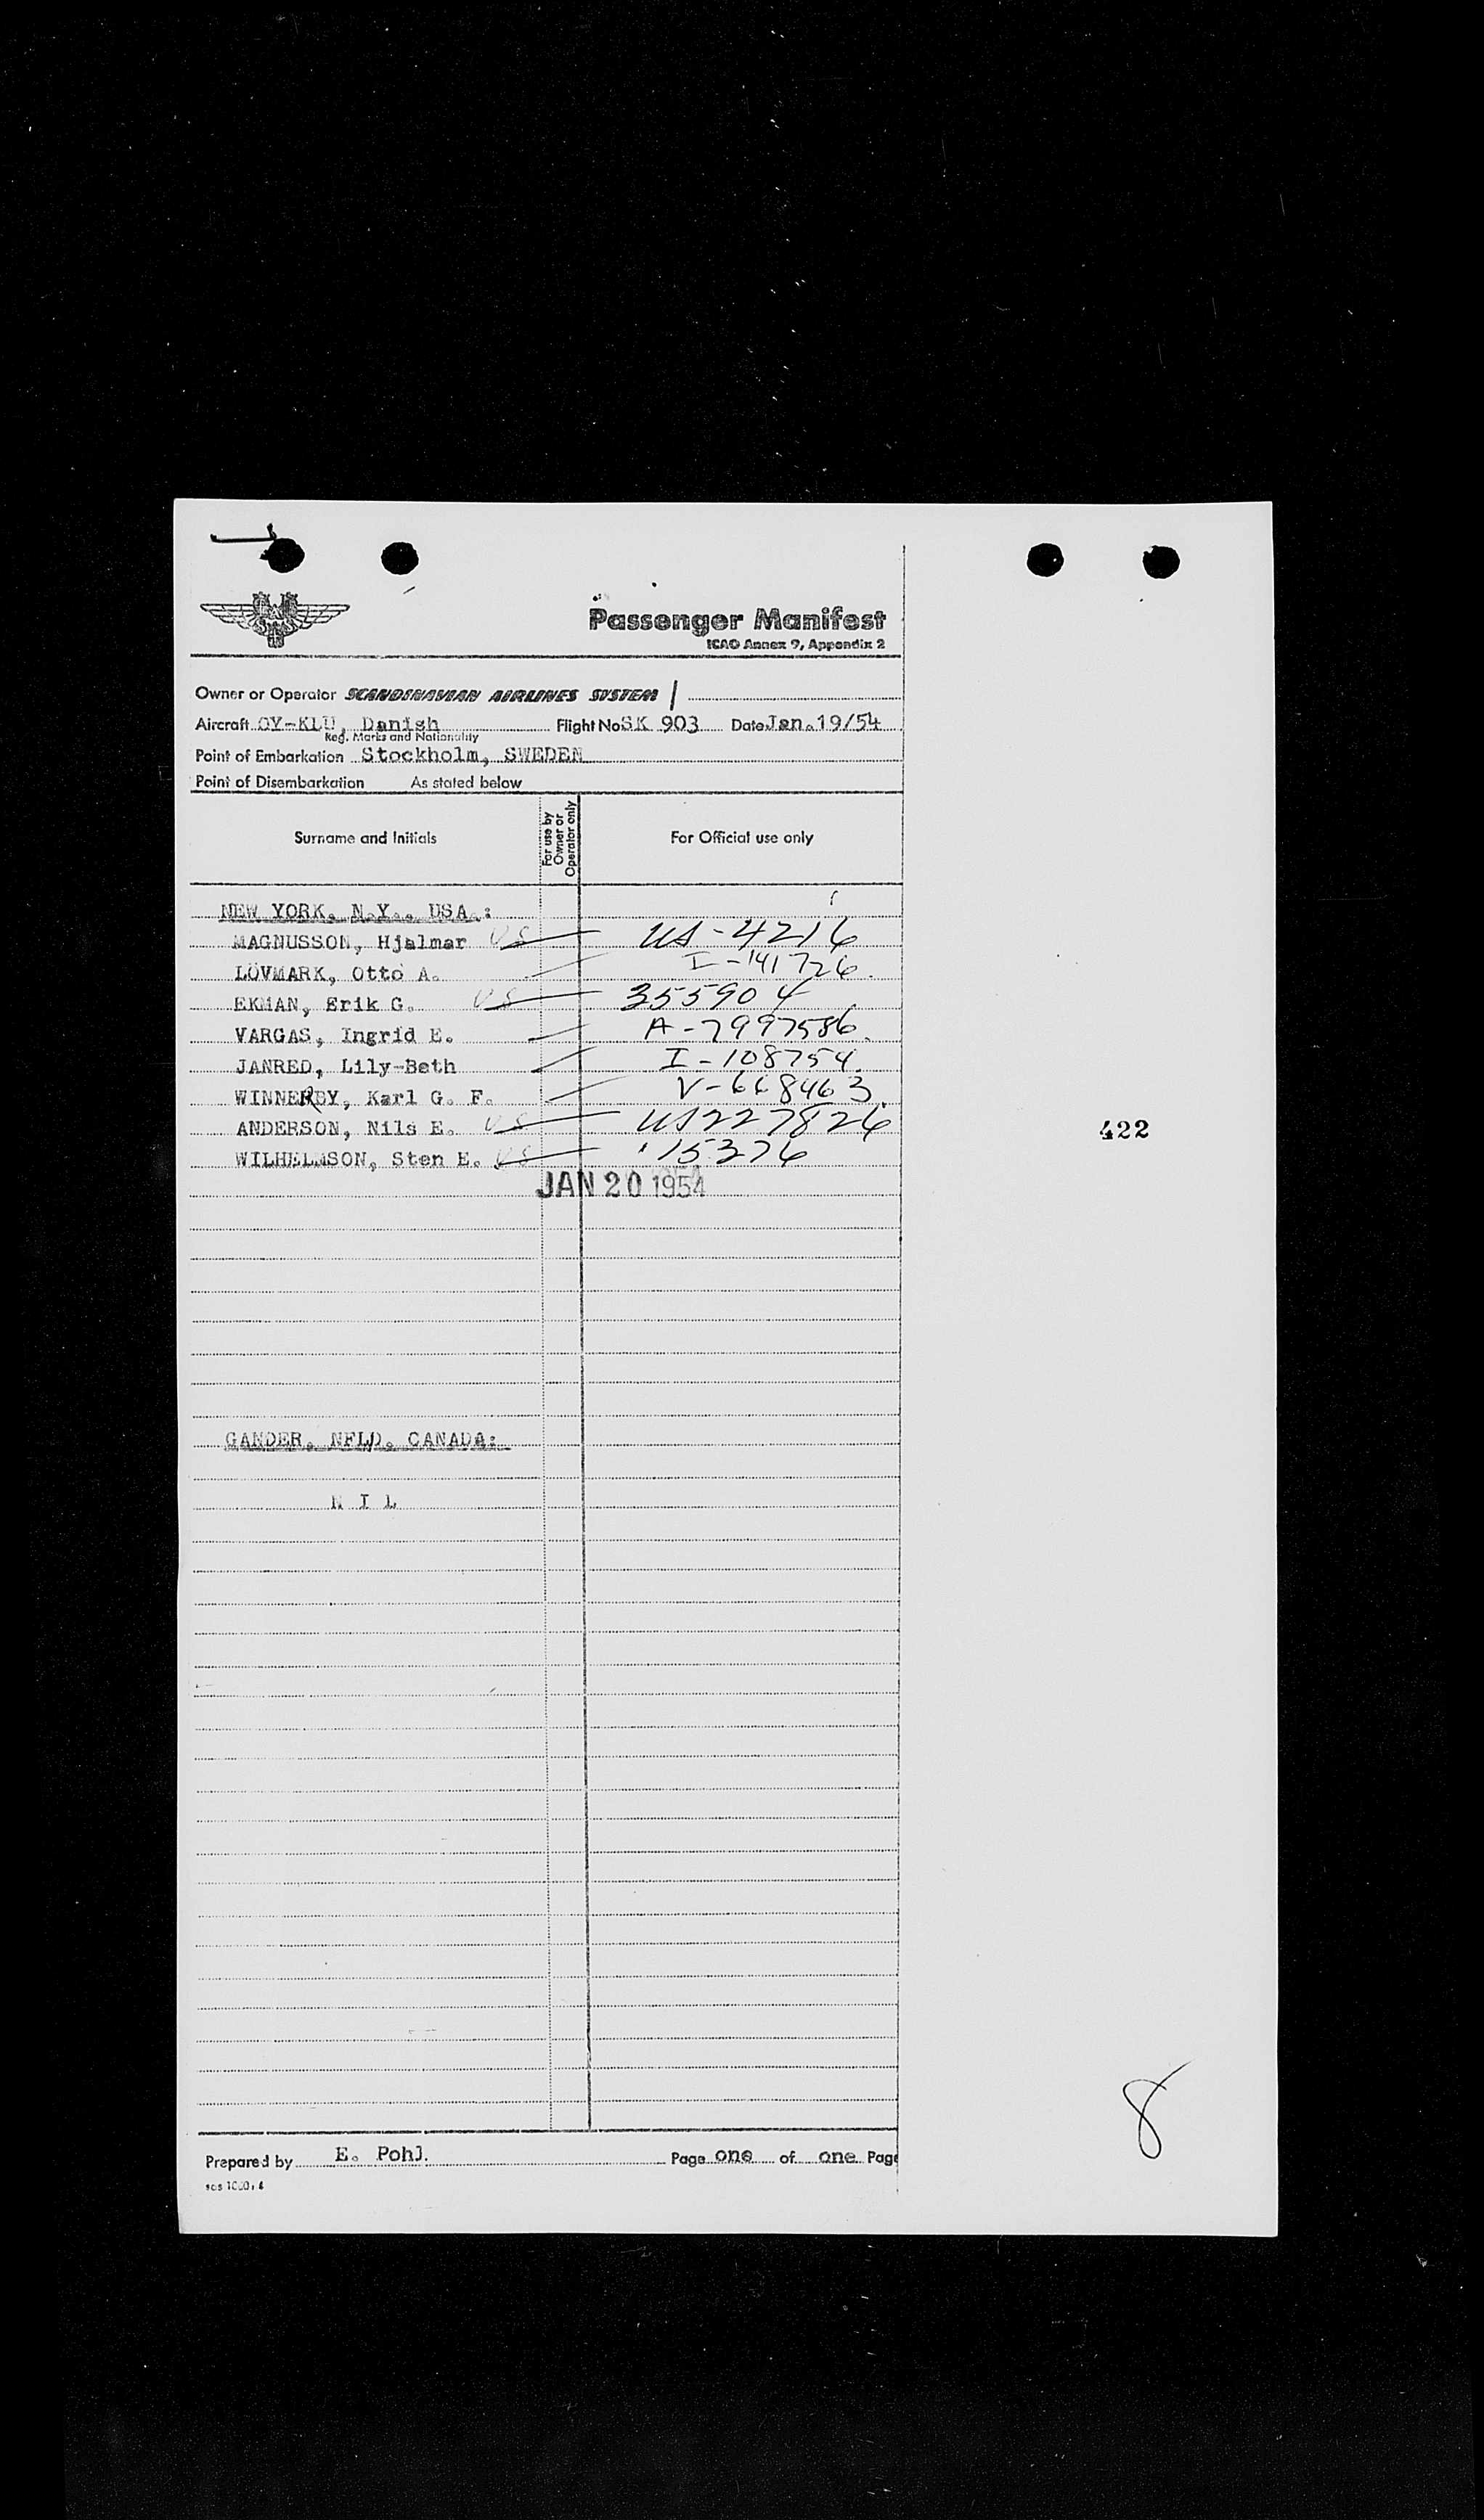 Passenger Manifest
ICAO Annex 9, Appendix 2
Owner or Operator SCANDINAVIAN AIRLINES SYSTEM
Aircraft OY-KLU, Danish Flight No SK 903 Date Jan. 19/54
Reg. Marks and Nationality
Point of Embarkation Stockholm, SWEDEN
Point of Disembarkation As stated below
Surname and Initials For use by Owner or Operator only For Official use only
NEW YORK, N.Y., USA.:
MAGNUSSON, Hjalmar US US-4216
LÖVMARK, Otto A. I-141726.
EKMAN, Erik G. US 355904
VARGAS, Ingrid E. A-7997586.
JANRED, Lily-Beth I-108754.
WINNERBY, Karl G. F. V-668463.
ANDERSON, Nils E. US US227826
WILHELMSON, Sten E. US 115376
422
JAN 20 1954
GANDER, NFLD. CANADA:
N I L
8
Prepared by E. Pohl. Page one of one Page